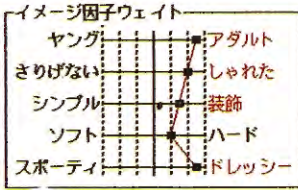 イメージ因子ウェイト
ヤング アダルト
さりげない しゃれた
シンプル 装飾
ソフト ハード
スポーティ ドレッシー